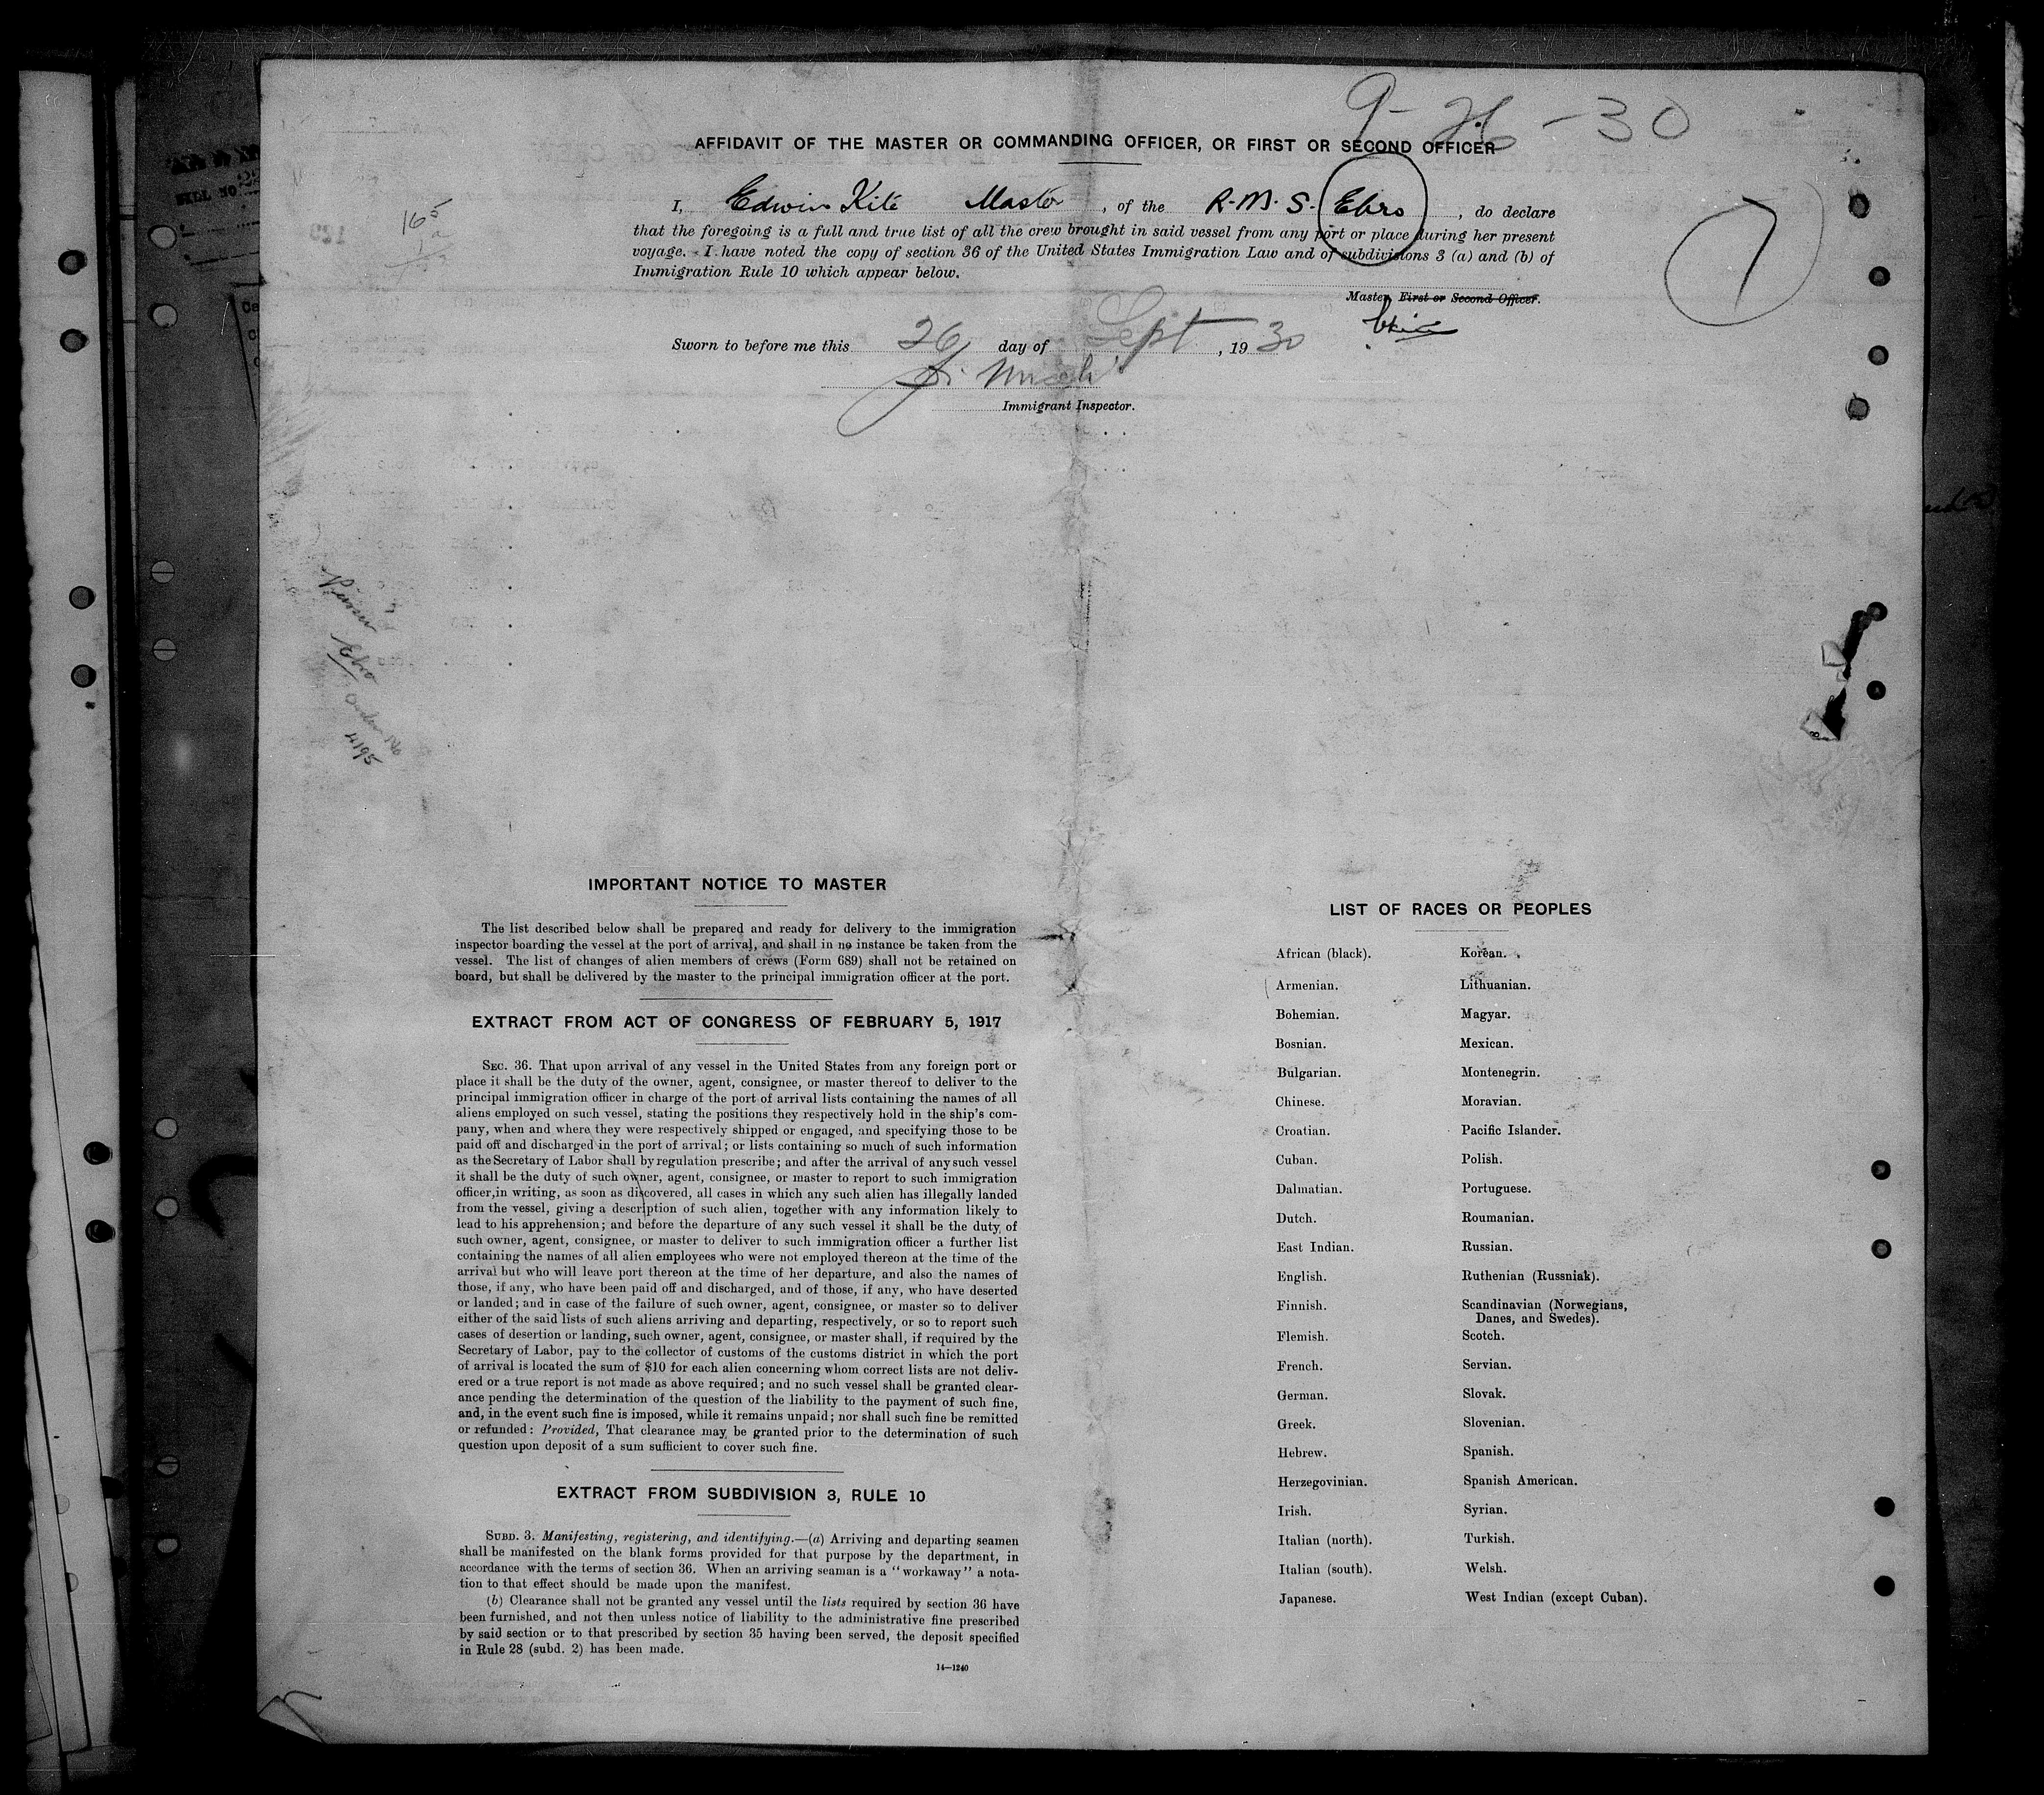 9-26-30
AFFIDAVIT OF THE MASTER OR COMMANDING OFFICER, OR FIRST OR SECOND OFFICER
I, Edwin Kite Master, of the R.M.S. Ebro, do declare
that the foregoing is a full and true list of all the crew brought in said vessel from any port or place during her present
voyage. I have noted the copy of section 36 of the United States Immigration Law and of subdivisions 3 (a) and (b) of
Immigration Rule 10 which appear below.
Master, First or Second Officer.
Sworn to before me this 26 day of Sept, 1930
Immigrant Inspector.
7
165
Ebro
Order No
4195
IMPORTANT NOTICE TO MASTER
The list described below shall be prepared and ready for delivery to the immigration
inspector boarding the vessel at the port of arrival, and shall in no instance be taken from the
vessel. The list of changes of alien members of crews (Form 689) shall not be retained on
board, but shall be delivered by the master to the principal immigration officer at the port.
EXTRACT FROM ACT OF CONGRESS OF FEBRUARY 5, 1917
SEC. 36. That upon arrival of any vessel in the United States from any foreign port or
place it shall be the duty of the owner, agent, consignee, or master thereof to deliver to the
principal immigration officer in charge of the port of arrival lists containing the names of all
aliens employed on such vessel, stating the positions they respectively hold in the ship's com-
pany, when and where they were respectively shipped or engaged, and specifying those to be
paid off and discharged in the port of arrival; or lists containing so much of such information
as the Secretary of Labor shall by regulation prescribe; and after the arrival of any such vessel
it shall be the duty of such owner, agent, consignee, or master to report to such immigration
officer, in writing, as soon as discovered, all cases in which any such alien has illegally landed
from the vessel, giving a description of such alien, together with any information likely to
lead to his apprehension; and before the departure of any such vessel it shall be the duty of
such owner, agent, consignee, or master to deliver to such immigration officer a further list
containing the names of all alien employees who were not employed thereon at the time of the
arrival but who will leave port thereon at the time of her departure, and also the names of
those, if any, who have been paid off and discharged, and of those, if any, who have deserted
or landed; and in case of the failure of such owner, agent, consignee, or master so to deliver
either of the said lists of such aliens arriving and departing, respectively, or so to report such
cases of desertion or landing, such owner, agent, consignee, or master shall, if required by the
Secretary of Labor, pay to the collector of customs of the customs district in which the port
of arrival is located the sum of $10 for each alien concerning whom correct lists are not deliv-
ered or a true report is not made as above required; and no such vessel shall be granted clear-
ance pending the determination of the question of the liability to the payment of such fine,
and, in the event such fine is imposed, while it remains unpaid; nor shall such fine be remitted
or refunded: Provided, That clearance may be granted prior to the determination of such
question upon deposit of a sum sufficient to cover such fine.
EXTRACT FROM SUBDIVISION 3, RULE 10
SUBD. 3. Manifesting, registering, and identifying.—(a) Arriving and departing seamen
shall be manifested on the blank forms provided for that purpose by the department, in
accordance with the terms of section 36. When an arriving seaman is a "workaway" a nota-
tion to that effect should be made upon the manifest.
(b) Clearance shall not be granted any vessel until the lists required by section 36 have
been furnished, and not then unless notice of liability to the administrative fine prescribed
by said section or to that prescribed by section 35 having been served, the deposit specified
in Rule 28 (subd. 2) has been made.
14—1240
LIST OF RACES OR PEOPLES
African (black).
Armenian.
Bohemian.
Bosnian.
Bulgarian.
Chinese.
Croatian.
Cuban.
Dalmatian.
Dutch.
East Indian.
English.
Finnish.
Flemish.
French.
German.
Greek.
Hebrew.
Herzegovinian.
Irish.
Italian (north).
Italian (south).
Japanese.
Korean.
Lithuanian.
Magyar.
Mexican.
Montenegrin.
Moravian.
Pacific Islander.
Polish.
Portuguese.
Roumanian.
Russian.
Ruthenian (Russniak).
Scandinavian (Norwegians,
Danes, and Swedes).
Scotch.
Servian.
Slovak.
Slovenian.
Spanish.
Spanish American.
Syrian.
Turkish.
Welsh.
West Indian (except Cuban).